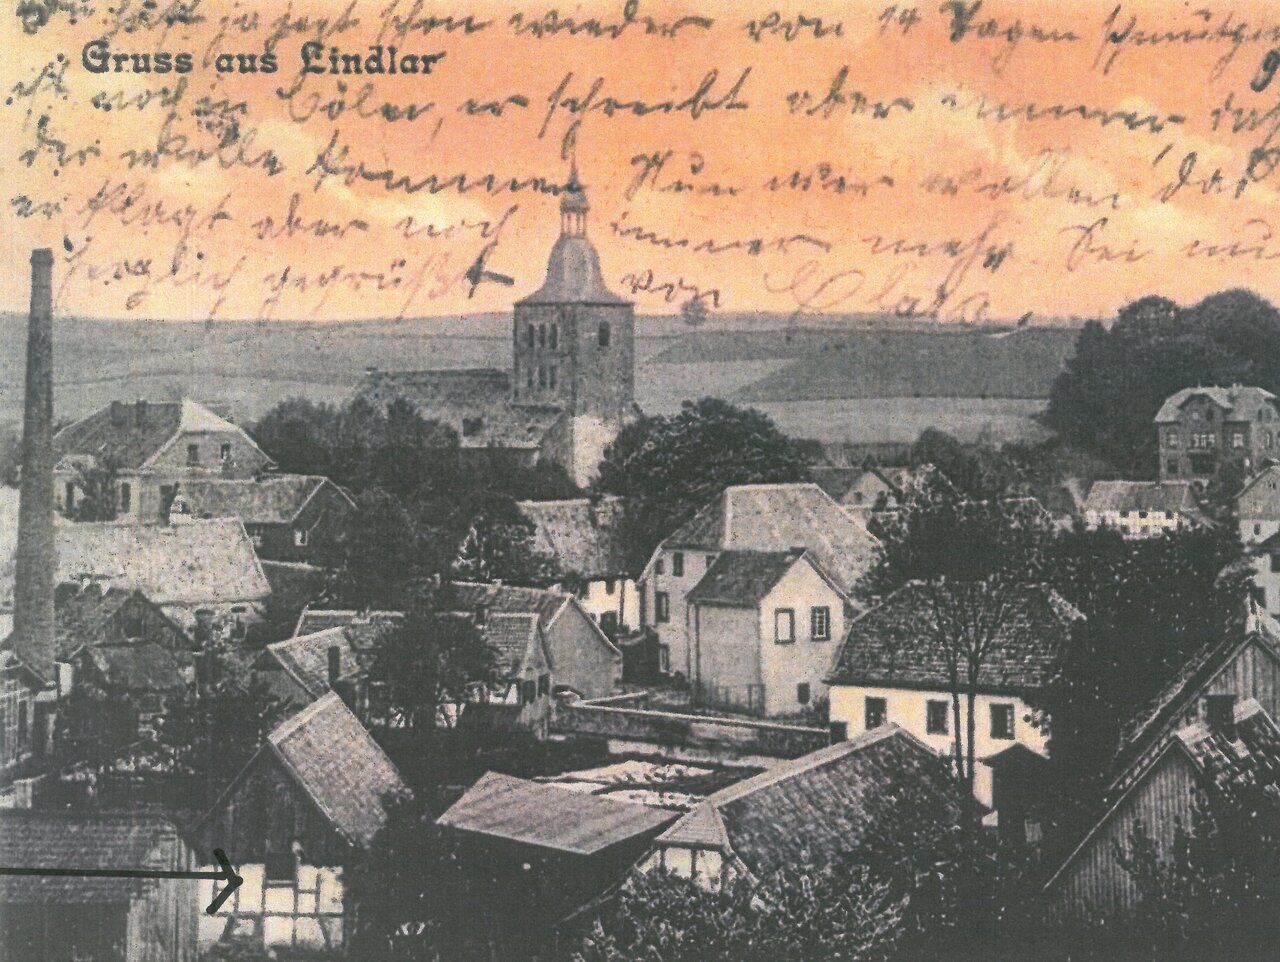 hast ja jetzt schon wieder von 14 Tagen
Gruss aus Lindlar
ist noch in Cöln, er schreibt aber immer daß
der wolle kommen. Nun wir wollen das
er klagt aber noch immer mehr. Sei nu
herzlich gegrüßt von Clara.